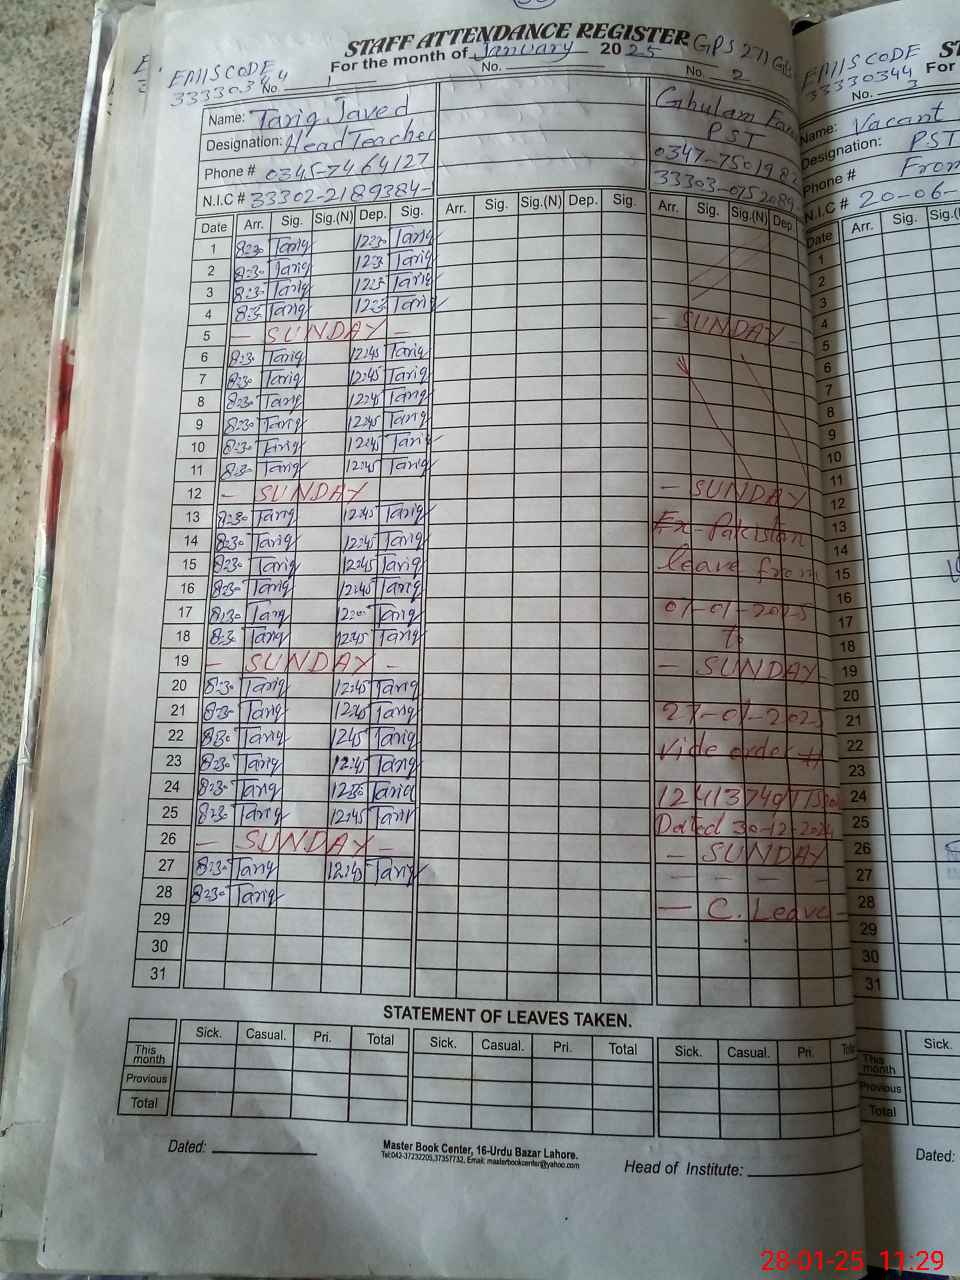 STAFF ATTENDANCE REGISTER GPS 271
For the month of January 2025
EMIS CODE
33330344
No. 1 No. No. 2
Name: Tariq Javed
Designation: Head Teacher
Phone # 0345-7464127
N.I.C # 33302-2189384-
Ghulam
PST
0347-750198
33303-0752089
Date Arr. Sig. Sig.(N) Dep. Sig. Arr. Sig. Sig.(N) Dep. Sig. Arr. Sig. Sig.(N) Dep.
1 8:30 Tariq 12:30 Tariq
2 8:30 Tariq 12:30 Tariq
3 8:30 Tariq 12:30 Tariq
4 8:30 Tariq 12:30 Tariq
5 - SUNDAY - - SUNDAY -
6 8:30 Tariq 12:45 Tariq
7 8:30 Tariq 12:45 Tariq
8 8:30 Tariq 12:45 Tariq
9 8:30 Tariq 12:45 Tariq
10 8:30 Tariq 12:45 Tariq
11 8:30 Tariq 12:45 Tariq
12 - SUNDAY - SUNDAY
13 8:30 Tariq 12:45 Tariq Ex-Pakistan
14 8:30 Tariq 12:45 Tariq
15 8:30 Tariq 12:45 Tariq leave from
16 8:30 Tariq 12:45 Tariq
17 8:30 Tariq Tariq 01-01-2025
18 8:30 Tariq 12:45 Tariq to
19 - SUNDAY - - SUNDAY
20 8:30 Tariq 12:45 Tariq
21 8:30 Tariq 12:45 Tariq 27-01-2025
22 8:30 Tariq 12:45 Tariq vide order #
23 8:30 Tariq 12:45 Tariq
24 8:30 Tariq 12:30 Tariq 12413749
25 8:30 Tariq 12:45 Tariq Dated 30-12-2024
26 - SUNDAY - - SUNDAY
27 8:30 Tariq 12:45 Tariq - - - -
28 8:30 Tariq - C. Leave -
29
30
31
STATEMENT OF LEAVES TAKEN.
Sick. Casual. Pri. Total Sick. Casual. Pri. Total Sick. Casual. Pri.
This month
Previous
Total
Dated:
Master Book Center, 16-Urdu Bazar Lahore.
Tel:042-37232205,37357732, Email: masterbookcenter@yahoo.com
Head of Institute:
EMIS CODE
33330344
ST
For
No. 3
Name: Vacant
Designation: PST
Phone # From
N.I.C # 20-06-
Date Arr. Sig.
1
2
3
4
5
6
7
8
9
10
11
12
13
14
15
16
17
18
19
20
21
22
23
24
25
26
27
28
29
30
31
Sick.
This month
Previous
Total
Dated:
28-01-25 11:29